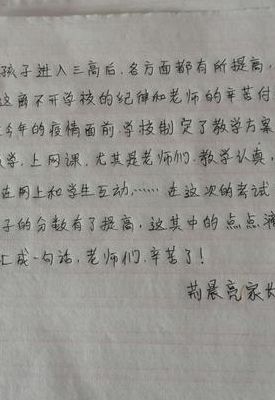 孩子进入三高后,各方面都有所提高,
这离不开学校的纪律和老师的辛苦付
在今年的疫情面前,学校制定了教学方案
学,上网课,尤其是老师们,教学认真,
在网上和学生互动……在这次的考试
子的分数有了提高,这其中的点点滴
汇成一句话,老师们,辛苦了!
荊晨亮家长